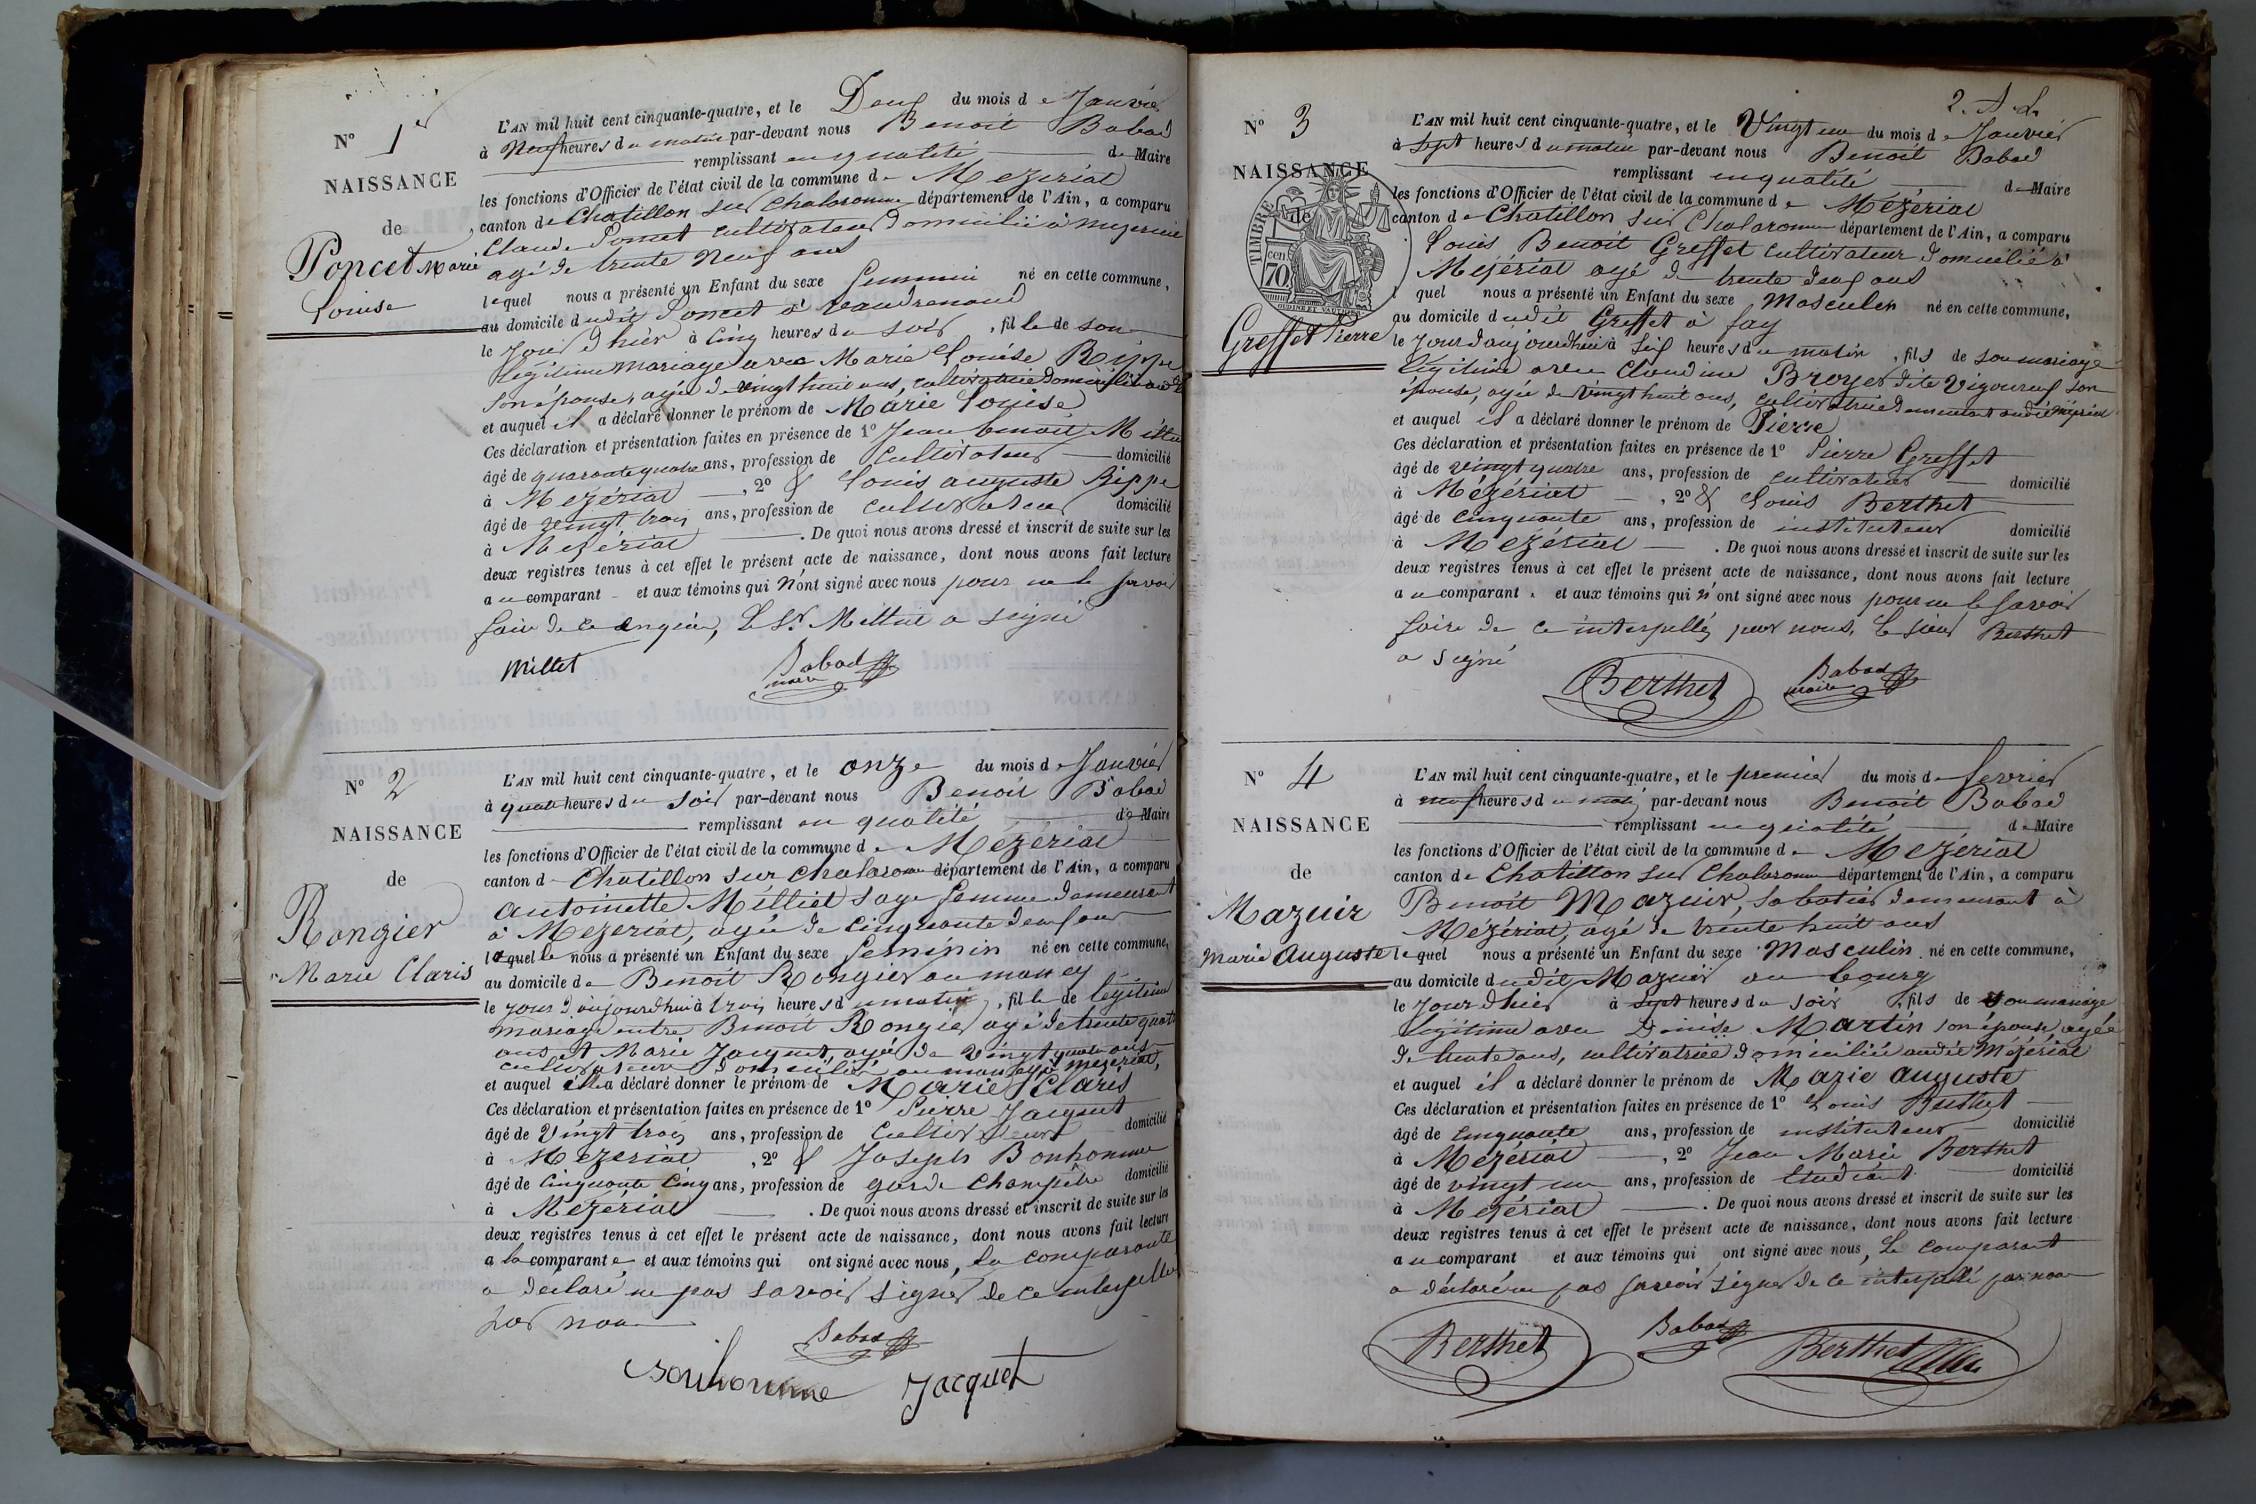 N° 1er
NAISSANCE
de
Poncet Marie
Louise
L'AN mil huit cent cinquante-quatre, et le Deux du mois de Janvier
à Neuf heures du matin par-devant nous Benoit Babad
remplissant en qualité de Maire
les fonctions d'Officier de l'état civil de la commune de Mézériat
canton de Chatillon sur Chalaronne département de l'Ain, a comparu
Claude Poncet cultivateur domicilié à Mezeriat
agé de trente Neuf ans
lequel nous a présenté un Enfant du sexe feminin né en cette commune,
au domicile dudit Poncet à
le jour d'hier à Cinq heures du soir, fille de son
légitime mariage avec Marie Louise Rippe
son épouse, agée de vingt huit ans, cultivatrice domiciliée
et auquel il a déclaré donner le prénom de Marie Louise
Ces déclaration et présentation faites en présence de 1° Jean benoit
âgé de quarante quatre ans, profession de Cultivateur domicilié
à Mézériat, 2° & Louis auguste Rippe
âgé de vingt trois ans, profession de cultivateur domicilié
à Mézériat. De quoi nous avons dressé et inscrit de suite sur les
deux registres tenus à cet effet le présent acte de naissance, dont nous avons fait lecture
au comparant et aux témoins qui n'ont signé avec nous pour ne le savoir
faire de ce enquis, Le Sr. a signé
Millet Babad
maire
N° 2
NAISSANCE
de
Rongier
Marie Claris
L'AN mil huit cent cinquante-quatre, et le onze du mois de Janvier
à quatre heures du soir par-devant nous Benoit Babad
remplissant en qualité de Maire
les fonctions d'Officier de l'état civil de la commune de Mézériat
canton de Chatillon sur Chalaronne département de l'Ain, a comparu
Antoinette Milliet sage femme demeurant
à Mézériat, agée de cinquante deux ans
laquelle nous a présenté un Enfant du sexe feminin né en cette commune,
au domicile de Benoit Rongier au
le jour d'aujourdhui à trois heures du matin, fille de légitime
mariage entre Benoit Rongier agé de trente quatre
ans et Marie Jacquet agée de vingt quatre ans
cultivateurs domiciliés à Mezeriat,
et auquel elle a déclaré donner le prénom de Marie Claris
Ces déclaration et présentation faites en présence de 1° Pierre Jacquet
âgé de Vingt trois ans, profession de Cultivateur domicilié
à Mezeriat, 2° & Joseph Bonhomme
âgé de Cinquante Cinq ans, profession de garde Champêtre domicilié
à Mézériat. De quoi nous avons dressé et inscrit de suite sur les
deux registres tenus à cet effet le présent acte de naissance, dont nous avons fait lecture
a la comparante et aux témoins qui ont signé avec nous, la comparante
a déclaré ne pas savoir signer de ce interpellée
par nous
Babad
Bonhomme Jacquet
2. A. d.
N° 3
NAISSANCE
de
TIMBRE
70 cen
Greffet Pierre
L'AN mil huit cent cinquante-quatre, et le Vingt un du mois de Janvier
à Sept heures du matin par-devant nous Benoit Babad
remplissant en qualité de Maire
les fonctions d'Officier de l'état civil de la commune de Mézériat
canton de Chatillon sur Chalaronne département de l'Ain, a comparu
Louis Benoit Greffet cultivateur domicilié à
Mézériat agé de trente deux ans
lequel nous a présenté un Enfant du sexe Masculin né en cette commune,
au domicile dudit Greffet à fay
le jour d'aujourdhui à Six heures du matin, fils de son mariage
légitime avec Claudine Broyer dite Vigoureux son
épouse, agée de Vingt huit ans, cultivatrice demeurant audit Mézériat
et auquel il a déclaré donner le prénom de Pierre
Ces déclaration et présentation faites en présence de 1° Pierre Greffet
âgé de vingt quatre ans, profession de cultivateur domicilié
à Mézériat, 2° & Louis Berthet
âgé de cinquante ans, profession de instituteur domicilié
à Mézériat. De quoi nous avons dressé et inscrit de suite sur les
deux registres tenus à cet effet le présent acte de naissance, dont nous avons fait lecture
au comparant et aux témoins qui n'ont signé avec nous pour ne le savoir
faire de ce interpellés par nous, le sieur Berthet
a signé
Berthet Babad
maire
N° 4
NAISSANCE
de
Mazuir
Marie Auguste
L'AN mil huit cent cinquante-quatre, et le premier du mois de fevrier
à neuf heures du matin par-devant nous Benoit Babad
remplissant en qualité de Maire
les fonctions d'Officier de l'état civil de la commune de Mézériat
canton de Chatillon sur Chalaronne département de l'Ain, a comparu
Benoit Mazuir, Sabotier demeurant à
Mézériat, agé de trente huit ans
lequel nous a présenté un Enfant du sexe Masculin né en cette commune,
au domicile dudit Mazuir au bourg
le jour d'hier à sept heures du soir, fils de son mariage
légitime avec Denise Martin son épouse, agée
de trente ans, cultivatrice domiciliée audit Mézériat
et auquel il a déclaré donner le prénom de Marie Auguste
Ces déclaration et présentation faites en présence de 1° Louis Berthet
âgé de cinquante ans, profession de instituteur domicilié
à Mézériat, 2° Jean Marie Berthet
âgé de vingt un ans, profession de Etudiant domicilié
à Mézériat. De quoi nous avons dressé et inscrit de suite sur les
deux registres tenus à cet effet le présent acte de naissance, dont nous avons fait lecture
au comparant et aux témoins qui ont signé avec nous, Le comparant
a déclaré ne pas savoir signer de ce interpellé par nous
Berthet Babad Berthet